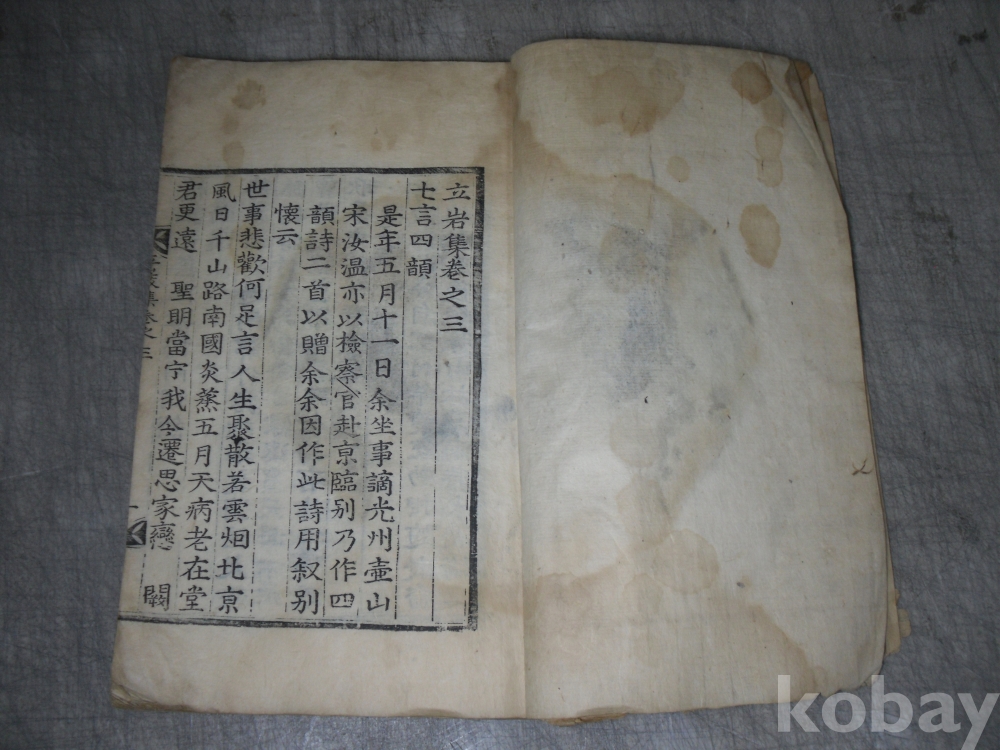 立岩集卷之三
七言四韻
是年五月十一日余坐事謫光州壷山
宋汝温亦以檢察官赴京臨别乃作四
韻詩二首以贈余余因作此詩用叙别
懷云
世事悲歡何足言人生聚散若雲烟北京
風日千山路南國炎蒸五月天病老在堂
君更遠 聖明當宁我今遷思家戀 闕
立岩集卷之三
一
kobay